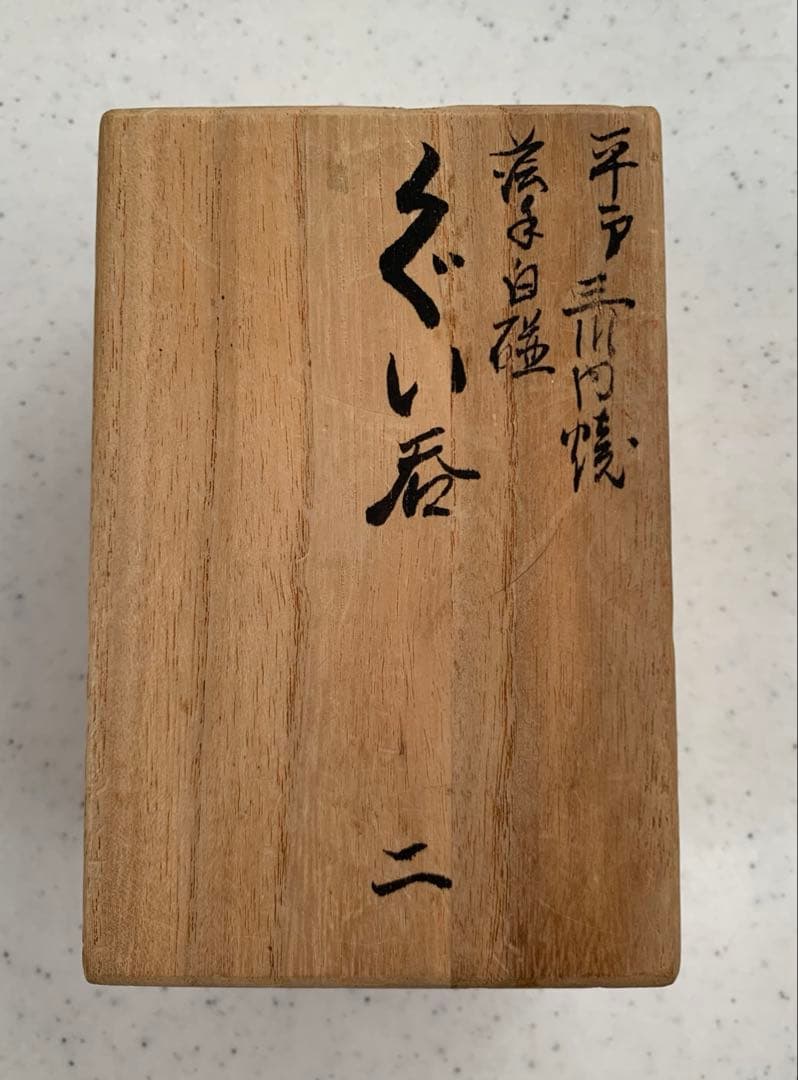 平戸三川内焼
薄手白磁
ぐい呑
二